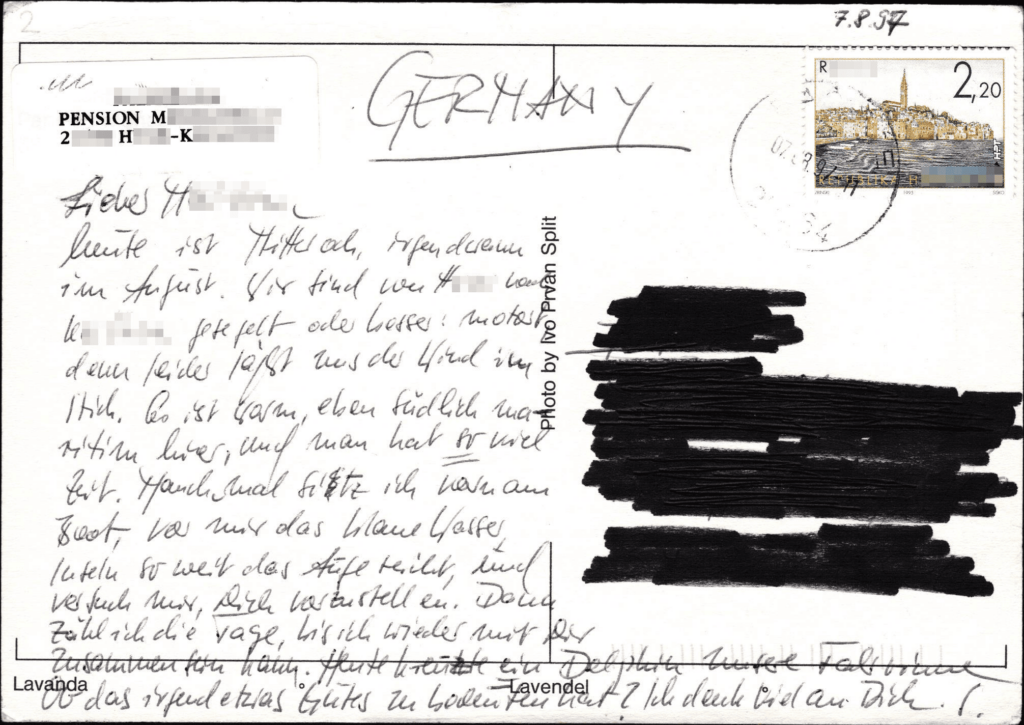 7.8.97
GERMANY
PENSION M
2 H -K
R
2,20
REPUBLIKA H
HPT
Lieber H
heute ist Mittwoch, irgendwann
im August. Wir sind von H nach
K gesegelt oder besser: motort
denn leider läßt uns der Wind im
Stich. Es ist warm, eben südlich ma-
ritim hier, und man hat so viel
Zeit. Manchmal sitz ich vorn am
Boot, vor mir das blaue Wasser,
Inseln so weit das Auge reicht, und
versuch mir, Dich vorzustellen. Dann
zähl ich die Tage, bis ich wieder mit Dir
zusammen sein kann. Heute kreuzte ein Delphin unsere Fahrrinne
Ob das irgend etwas Gutes zu bedeuten hat? Ich denk viel an Dich.
Photo by Ivo Prvan Split
Lavanda
Lavendel